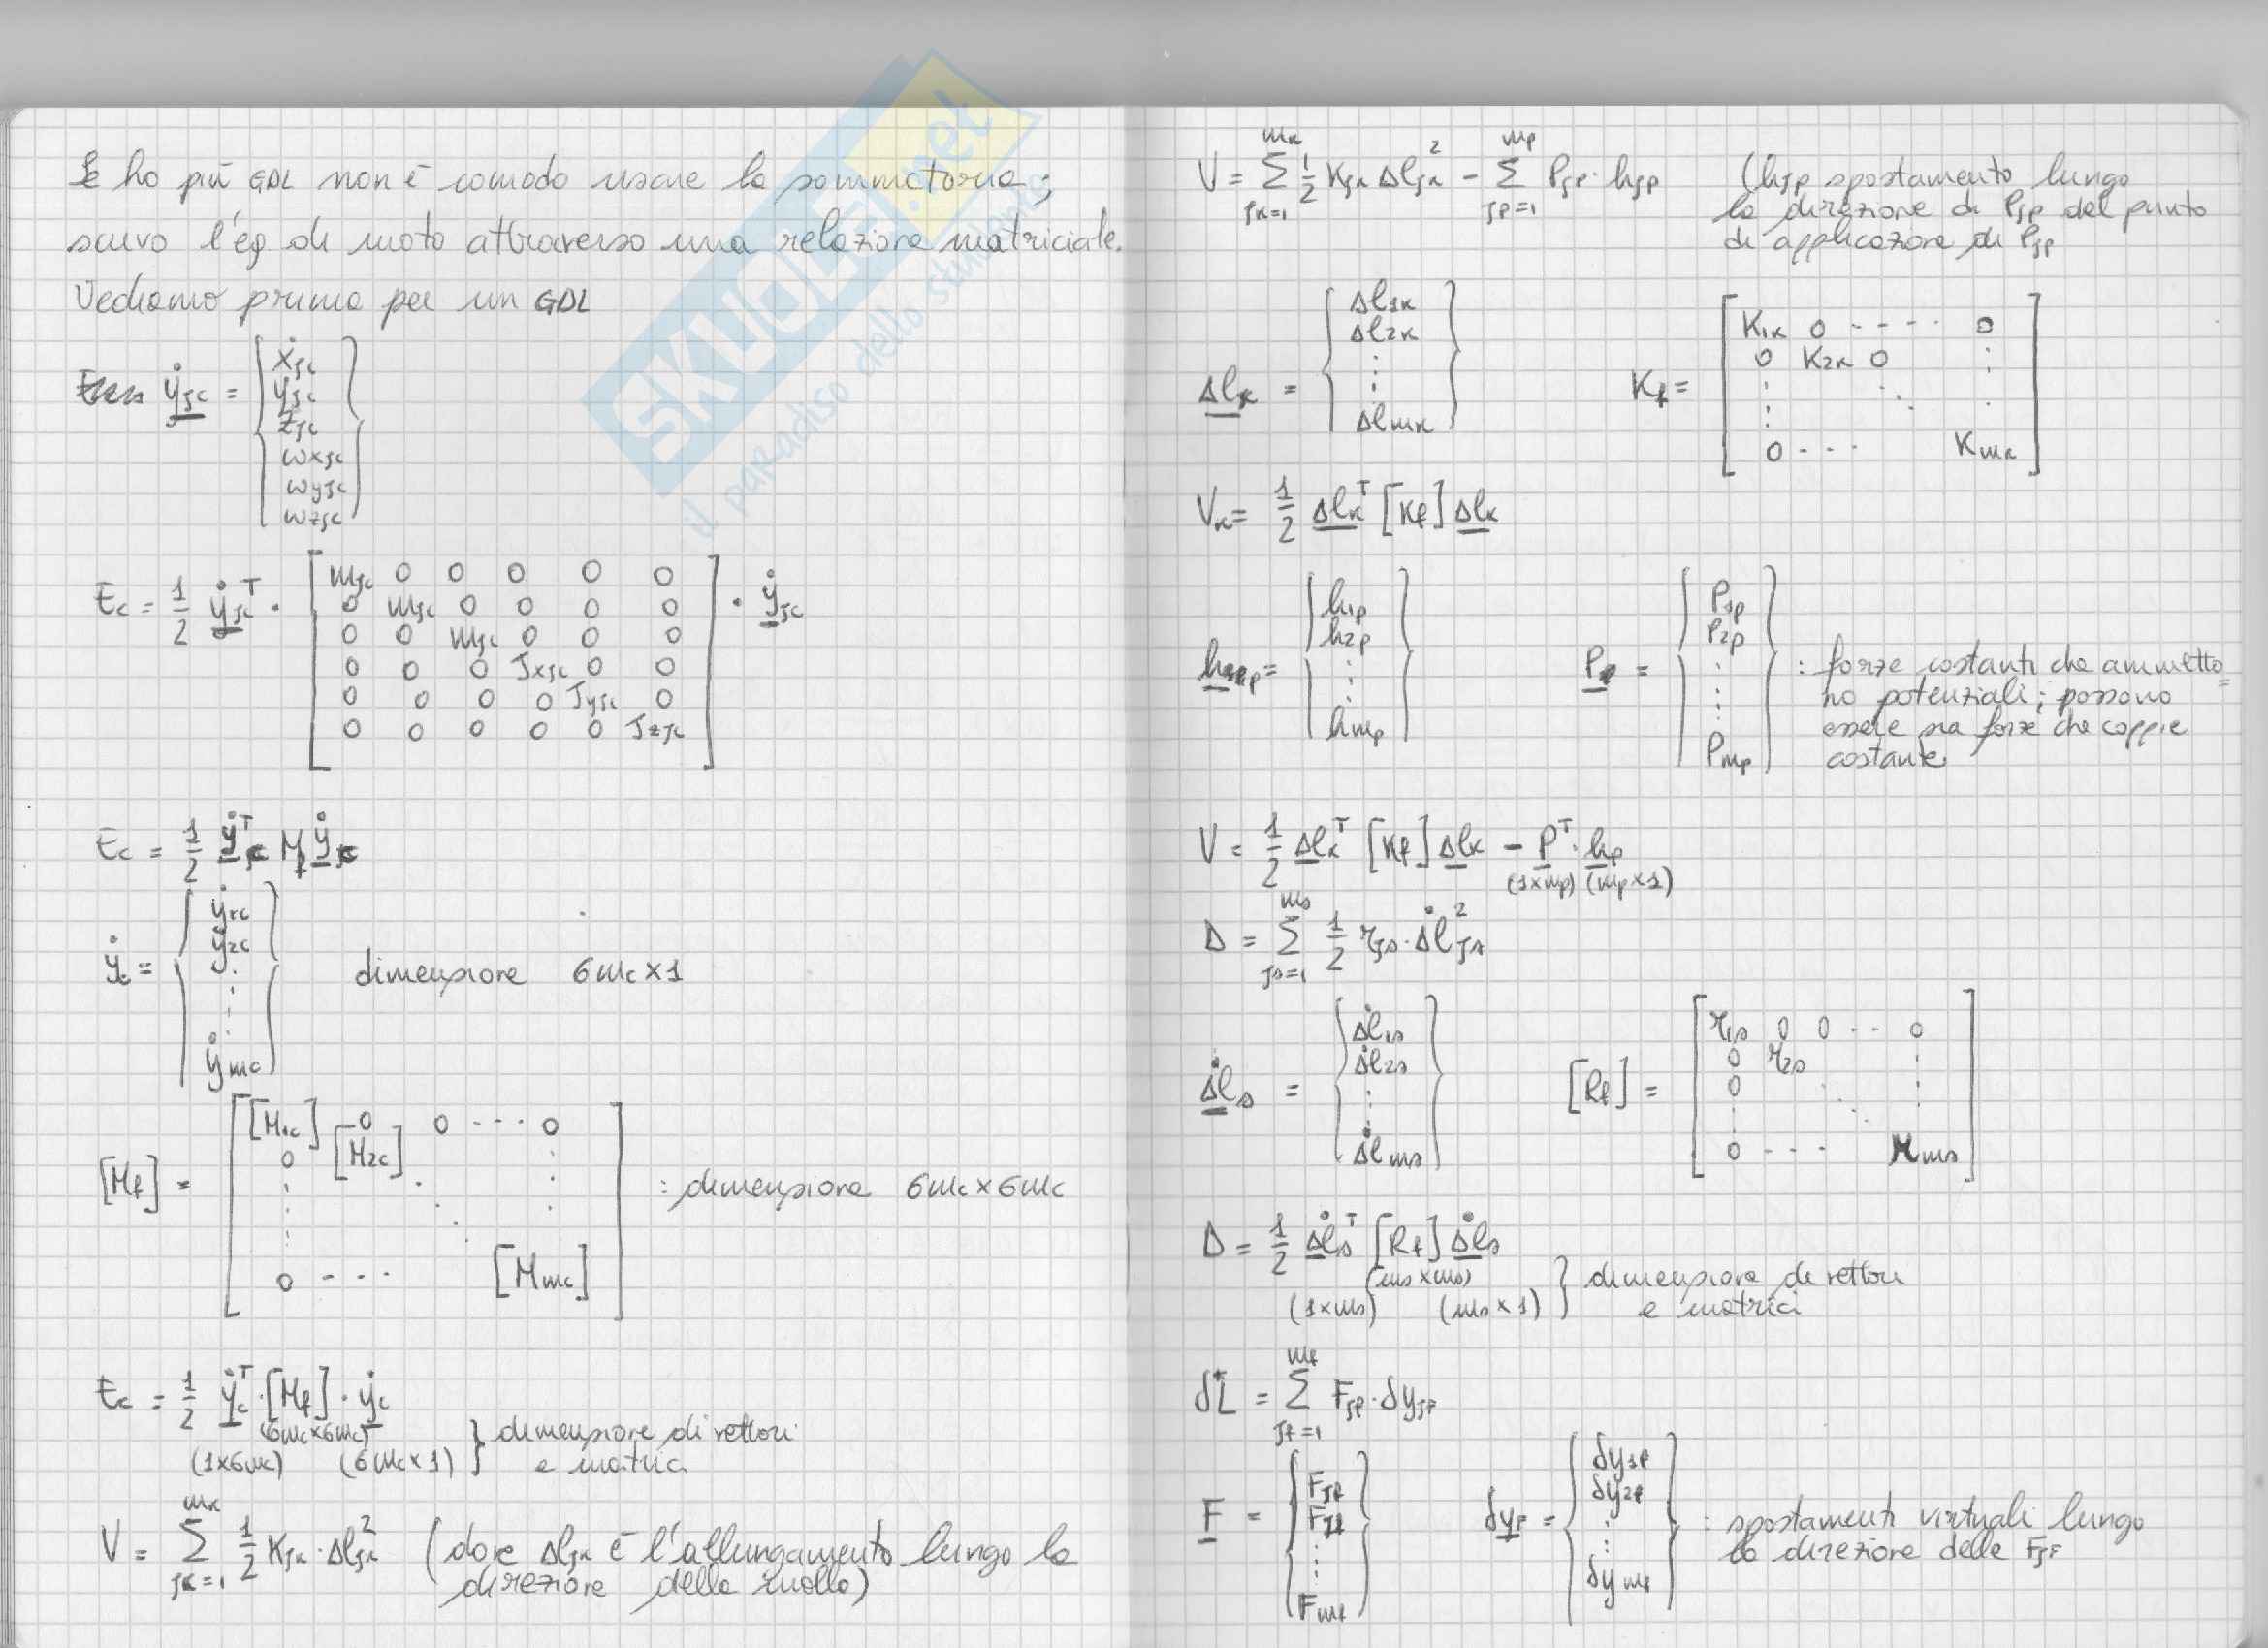 Se ho più GDL non è comodo usare la sommatoria;
scrivo l'eq di moto attraverso una relazione matriciale.
Vediamo prima per un GDL
ẏjc = { ẋjc ẏjc żjc ωxjc ωyjc ωzjc }
Ec = 1/2 ẏjc^T · [ mjc 0 0 0 0 0
0 mjc 0 0 0 0
0 0 mjc 0 0 0
0 0 0 Jxjc 0 0
0 0 0 0 Jyjc 0
0 0 0 0 0 Jzjc ] · ẏjc
Ec = 1/2 ẏc^T Mf ẏc
ẏc = { ẏ1c ẏ2c ⋮ ẏmc } dimensione 6mc×1
[Mf] = [ [M1c] 0 0 --- 0
0 [M2c]
0 --- [Mmc] ] : dimensione 6mc×6mc
Ec = 1/2 ẏc^T · [Mf] · ẏc
(6mc×6mc)
(1×6mc) (6mc×1) } dimensione di vettori e matrici
V = Σ jk=1 mk 1/2 Kjk · Δljk² (dove Δljk è l'allungamento lungo la
direzione della molla)
V = Σ jk=1 mk 1/2 Kjk Δljk² - Σ jp=1 mp Pjp · hjp (hjp spostamento lungo
la direzione di Pjp del punto
di applicazione di Pjp
Δlk = { Δl1k Δl2k ⋮ Δlmk } Kf = [ K1k 0 ---- 0
0 K2k 0
0 --- Kmk ]
Vk = 1/2 Δlk^T [Kf] Δlk
hp = { h1p h2p ⋮ hmp } P = { P1p P2p ⋮ Pmp } : forze costanti che ammetto
no potenziali; possono
essere sia forze che coppie
costante
V = 1/2 Δlk^T [Kf] Δlk - P^T · hp
(1×mp) (mp×1)
D = Σ js=1 ms 1/2 rjs · Δl̇js²
Δl̇s = { Δl̇1s Δl̇2s ⋮ Δl̇ms } [Rf] = [ r1s 0 0 -- 0
0 r2s
0
0 --- rms ]
D = 1/2 Δl̇s^T [Rf] Δl̇s
(ms×ms)
(1×ms) (ms×1) } dimensione di vettori
e matrici
δ*L = Σ jf=1 mf Fjf · δyjf
F = { F1f F2f ⋮ Fmf } δyf = { δy1f δy2f ⋮ δymf } : spostamenti virtuali lungo
la direzione delle Fjf
SKUOLA.net
il paradiso dello studente